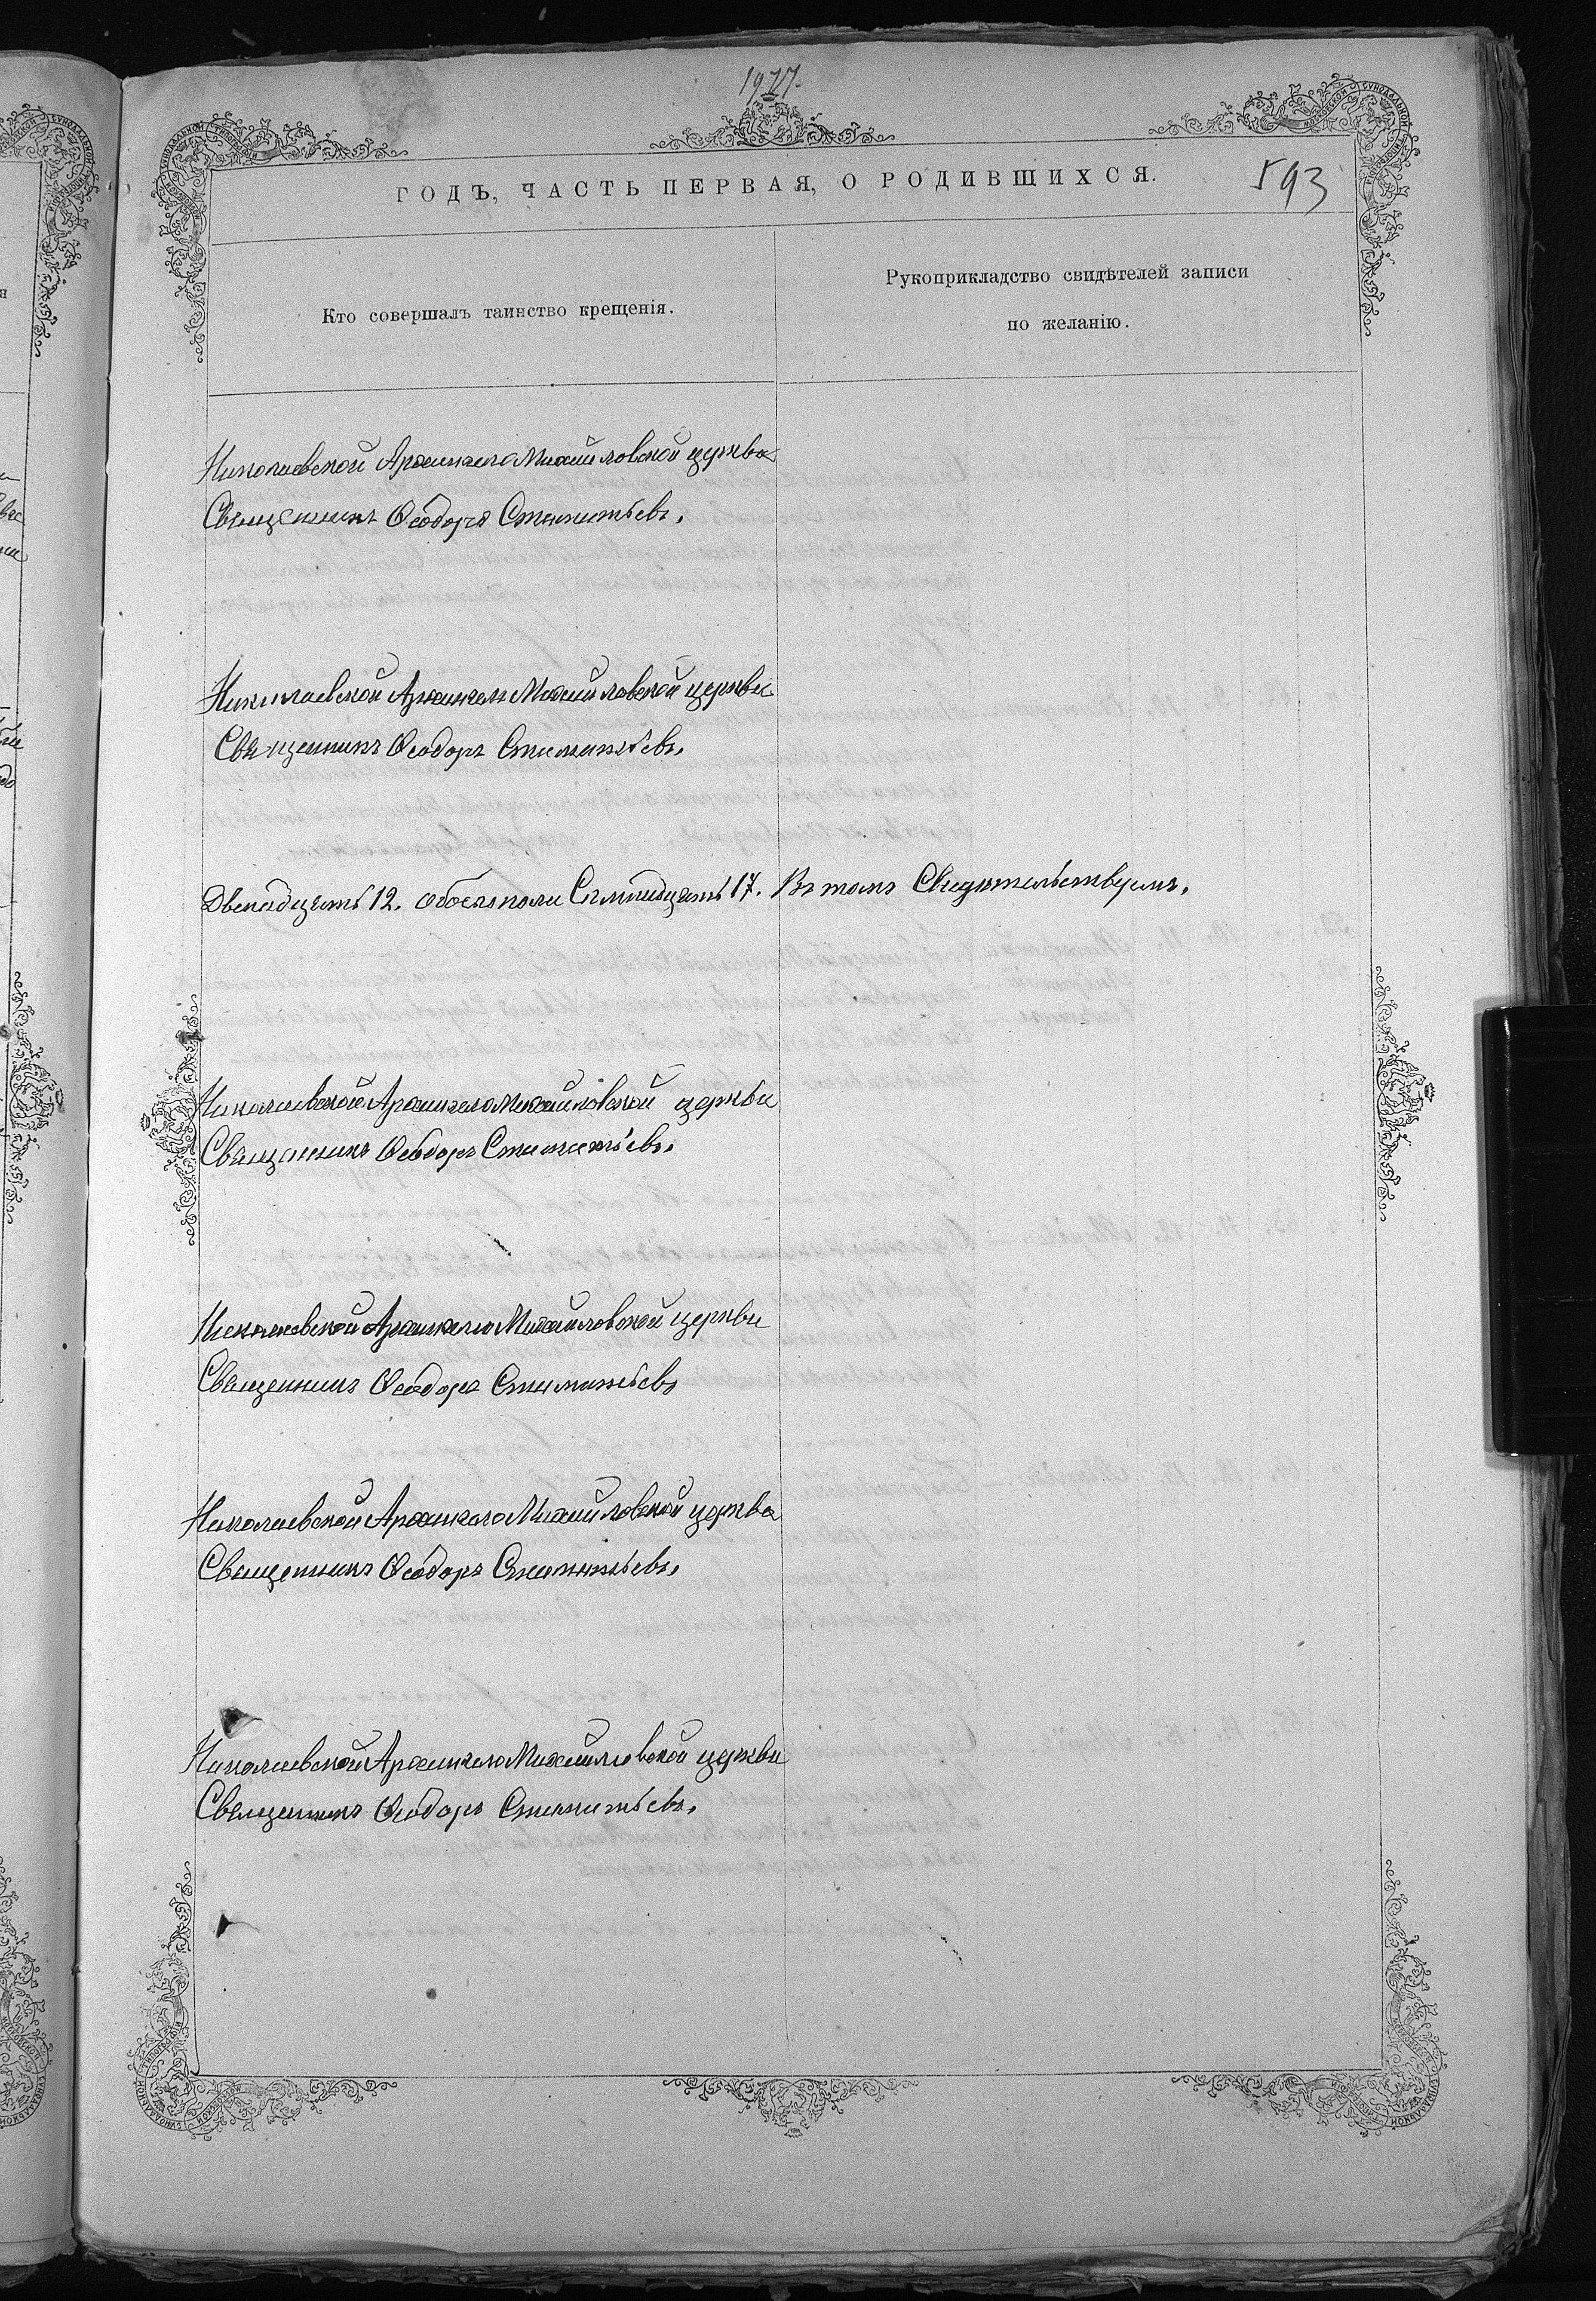 1977.
ГОДЪ, ЧАСТЬ ПЕРВАЯ, О РОДИВШИХСЯ.
593
Кто совершалъ таинство крещенія.
Рукоприкладство свидѣтелей записи
по желанію.
Николаевской АрхангелоМихайловской церкви
Священникъ Ѳеодоръ
Николаевской АрхангелоМихайловской церкви
Священникъ Ѳеодоръ
Двенадцать 12. обоего пола Семнадцать 17. Въ томъ Свидѣтельствуемъ.
Николаевской АрхангелоМихайловской церкви
Священникъ Ѳеодоръ
Николаевской АрхангелоМихайловской церкви
Священникъ Ѳеодоръ
Николаевской АрхангелоМихайловской церкви
Священникъ Ѳеодоръ
Николаевской АрхангелоМихайловской церкви
Священникъ Ѳеодоръ